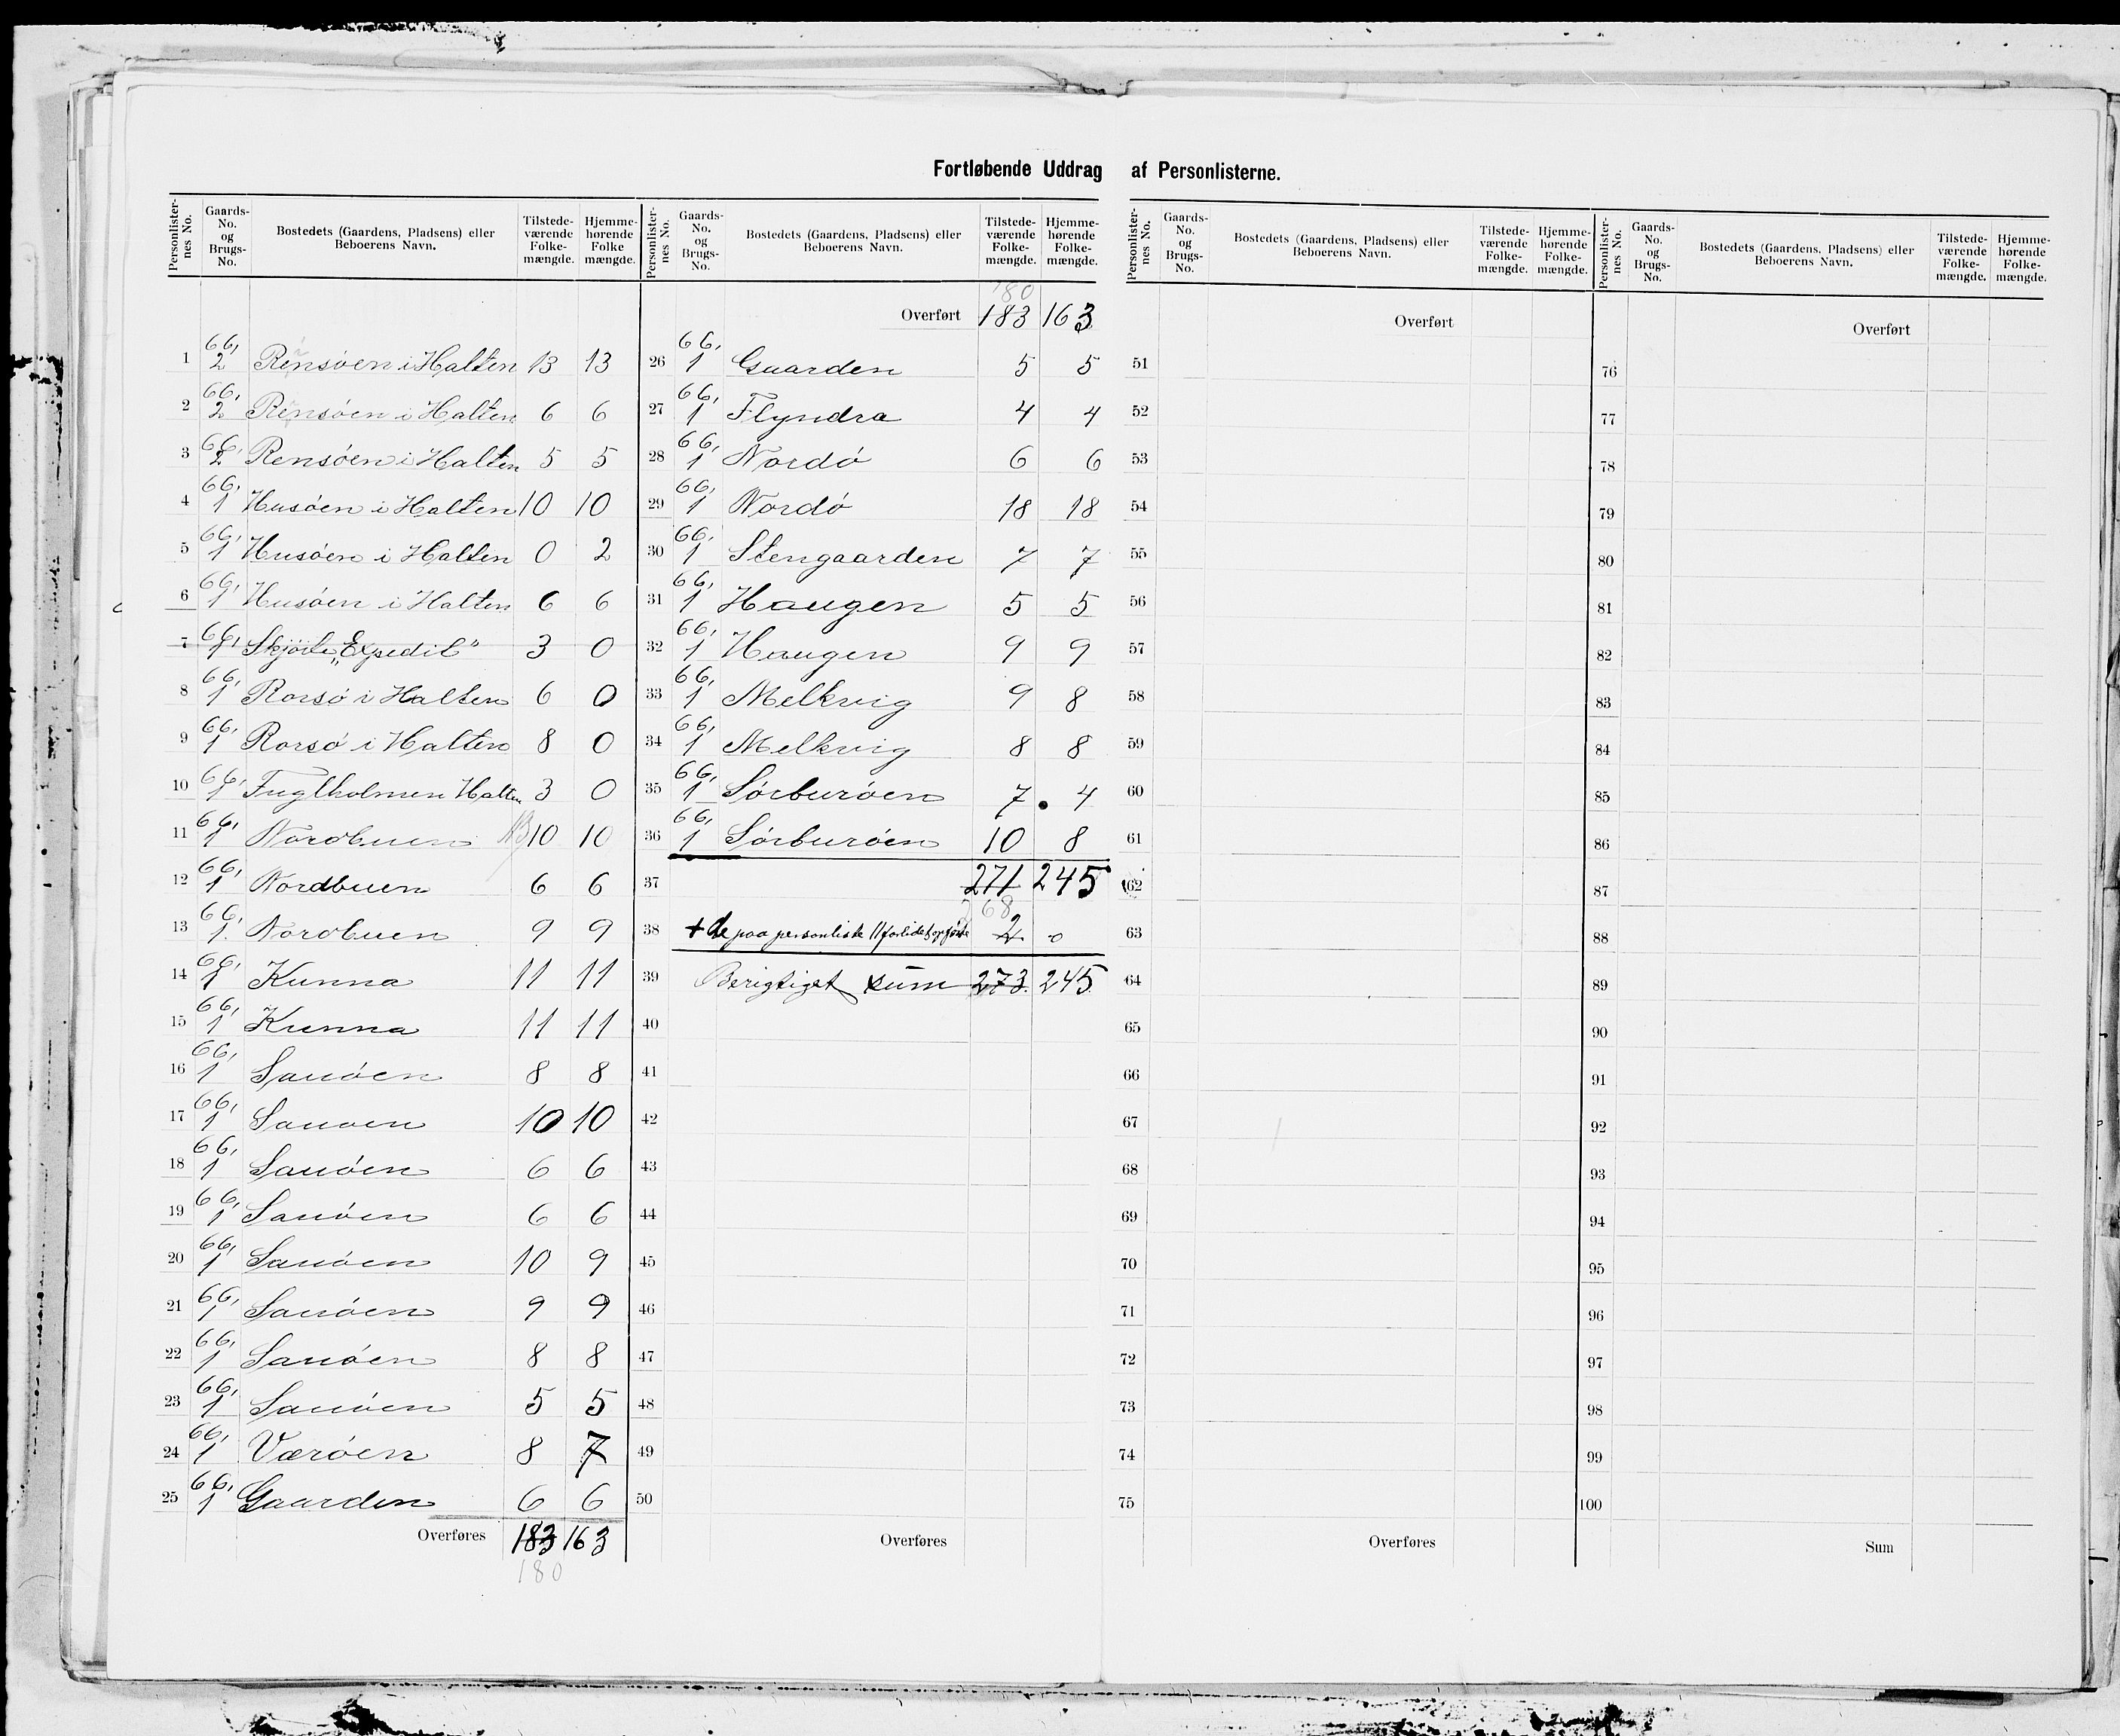 Fortløbende Uddrag af Personlisterne.
Personlister-nes No. Gaards-No. og Brugs-No. Bostedets (Gaardens, Pladsens) eller Beboerens Navn. Tilstede-værende Folke-mængde. Hjemme-hørende Folke mængde.
1 66, 2 Rensøen i Halten 13 13
2 66, 2 Rensøen i Halten 6 6
3 66, 2 Rensøen i Halten 5 5
4 66, 1 Husøen i Halten 10 10
5 66, 1 Husøen i Halten 0 2
6 66, 1 Husøen i Halten 6 6
7 66, 1 Skjøite „Expedit" 3 0
8 66, 1 Rorsø i Halten 6 0
9 66, 1 Rorsø i Halten 8 0
10 66, 1 Fuglholmen Halten 3 0
11 66, 1 Nordbuen NB 10 10
12 66, 1 Nordbuen 6 6
13 66, 1 Nordbuen 9 9
14 66, 1 Kunna 11 11
15 66, 1 Kunna 11 11
16 66, 1 Sauøen 8 8
17 66, 1 Sauøen 10 10
18 66, 1 Sauøen 6 6
19 66, 1 Sauøen 6 6
20 66, 1 Sauøen 10 9
21 66, 1 Sauøen 9 9
22 66, 1 Sauøen 8 8
23 66, 1 Sauøen 5 5
24 66, 1 Værøen 8 7
25 66, 1 Gaarden 6 6
Overføres 183 163
180
Personlister-nes No. Gaards-No. og Brugs-No. Bostedets (Gaardens, Pladsens) eller Beboerens Navn. Tilstede-værende Folke-mængde. Hjemme-hørende Folke-mængde.
180
Overført 183 163
26 66, 1 Gaarden 5 5
27 66, 1 Flyndra 4 4
28 66, 1 Nordø 6 6
29 66, 1 Nordø 18 18
30 66, 1 Stengaarden 7 7
31 66, 1 Haugen 5 5
32 66, 1 Haugen 9 9
33 66, 1 Melkvig 9 8
34 66, 1 Melkvig 8 8
35 66, 1 Sørburøen 7 4
36 66, 1 Sørburøen 10 8
37 271 245
268
38 + de paa personliste 11 forlidet opførte 2 0
39 Berigtiget sum 273 245
40
41
42
43
44
45
46
47
48
49
50
Overføres
Personlister-nes No. Gaards-No. og Brugs-No. Bostedets (Gaardens, Pladsens) eller Beboerens Navn. Tilstede-værende Folke-mængde. Hjemme-hørende Folke-mængde.
Overført
51
52
53
54
55
56
57
58
59
60
61
62
63
64
65
66
67
68
69
70
71
72
73
74
75
Overføres
Personlister-nes No. Gaards-No. og Brugs-No. Bostedets (Gaardens, Pladsens) eller Beboerens Navn. Tilstede-værende Folke-mængde. Hjemme-hørende Folke-mængde.
Overført
76
77
78
79
80
81
82
83
84
85
86
87
88
89
90
91
92
93
94
95
96
97
98
99
100
Sum